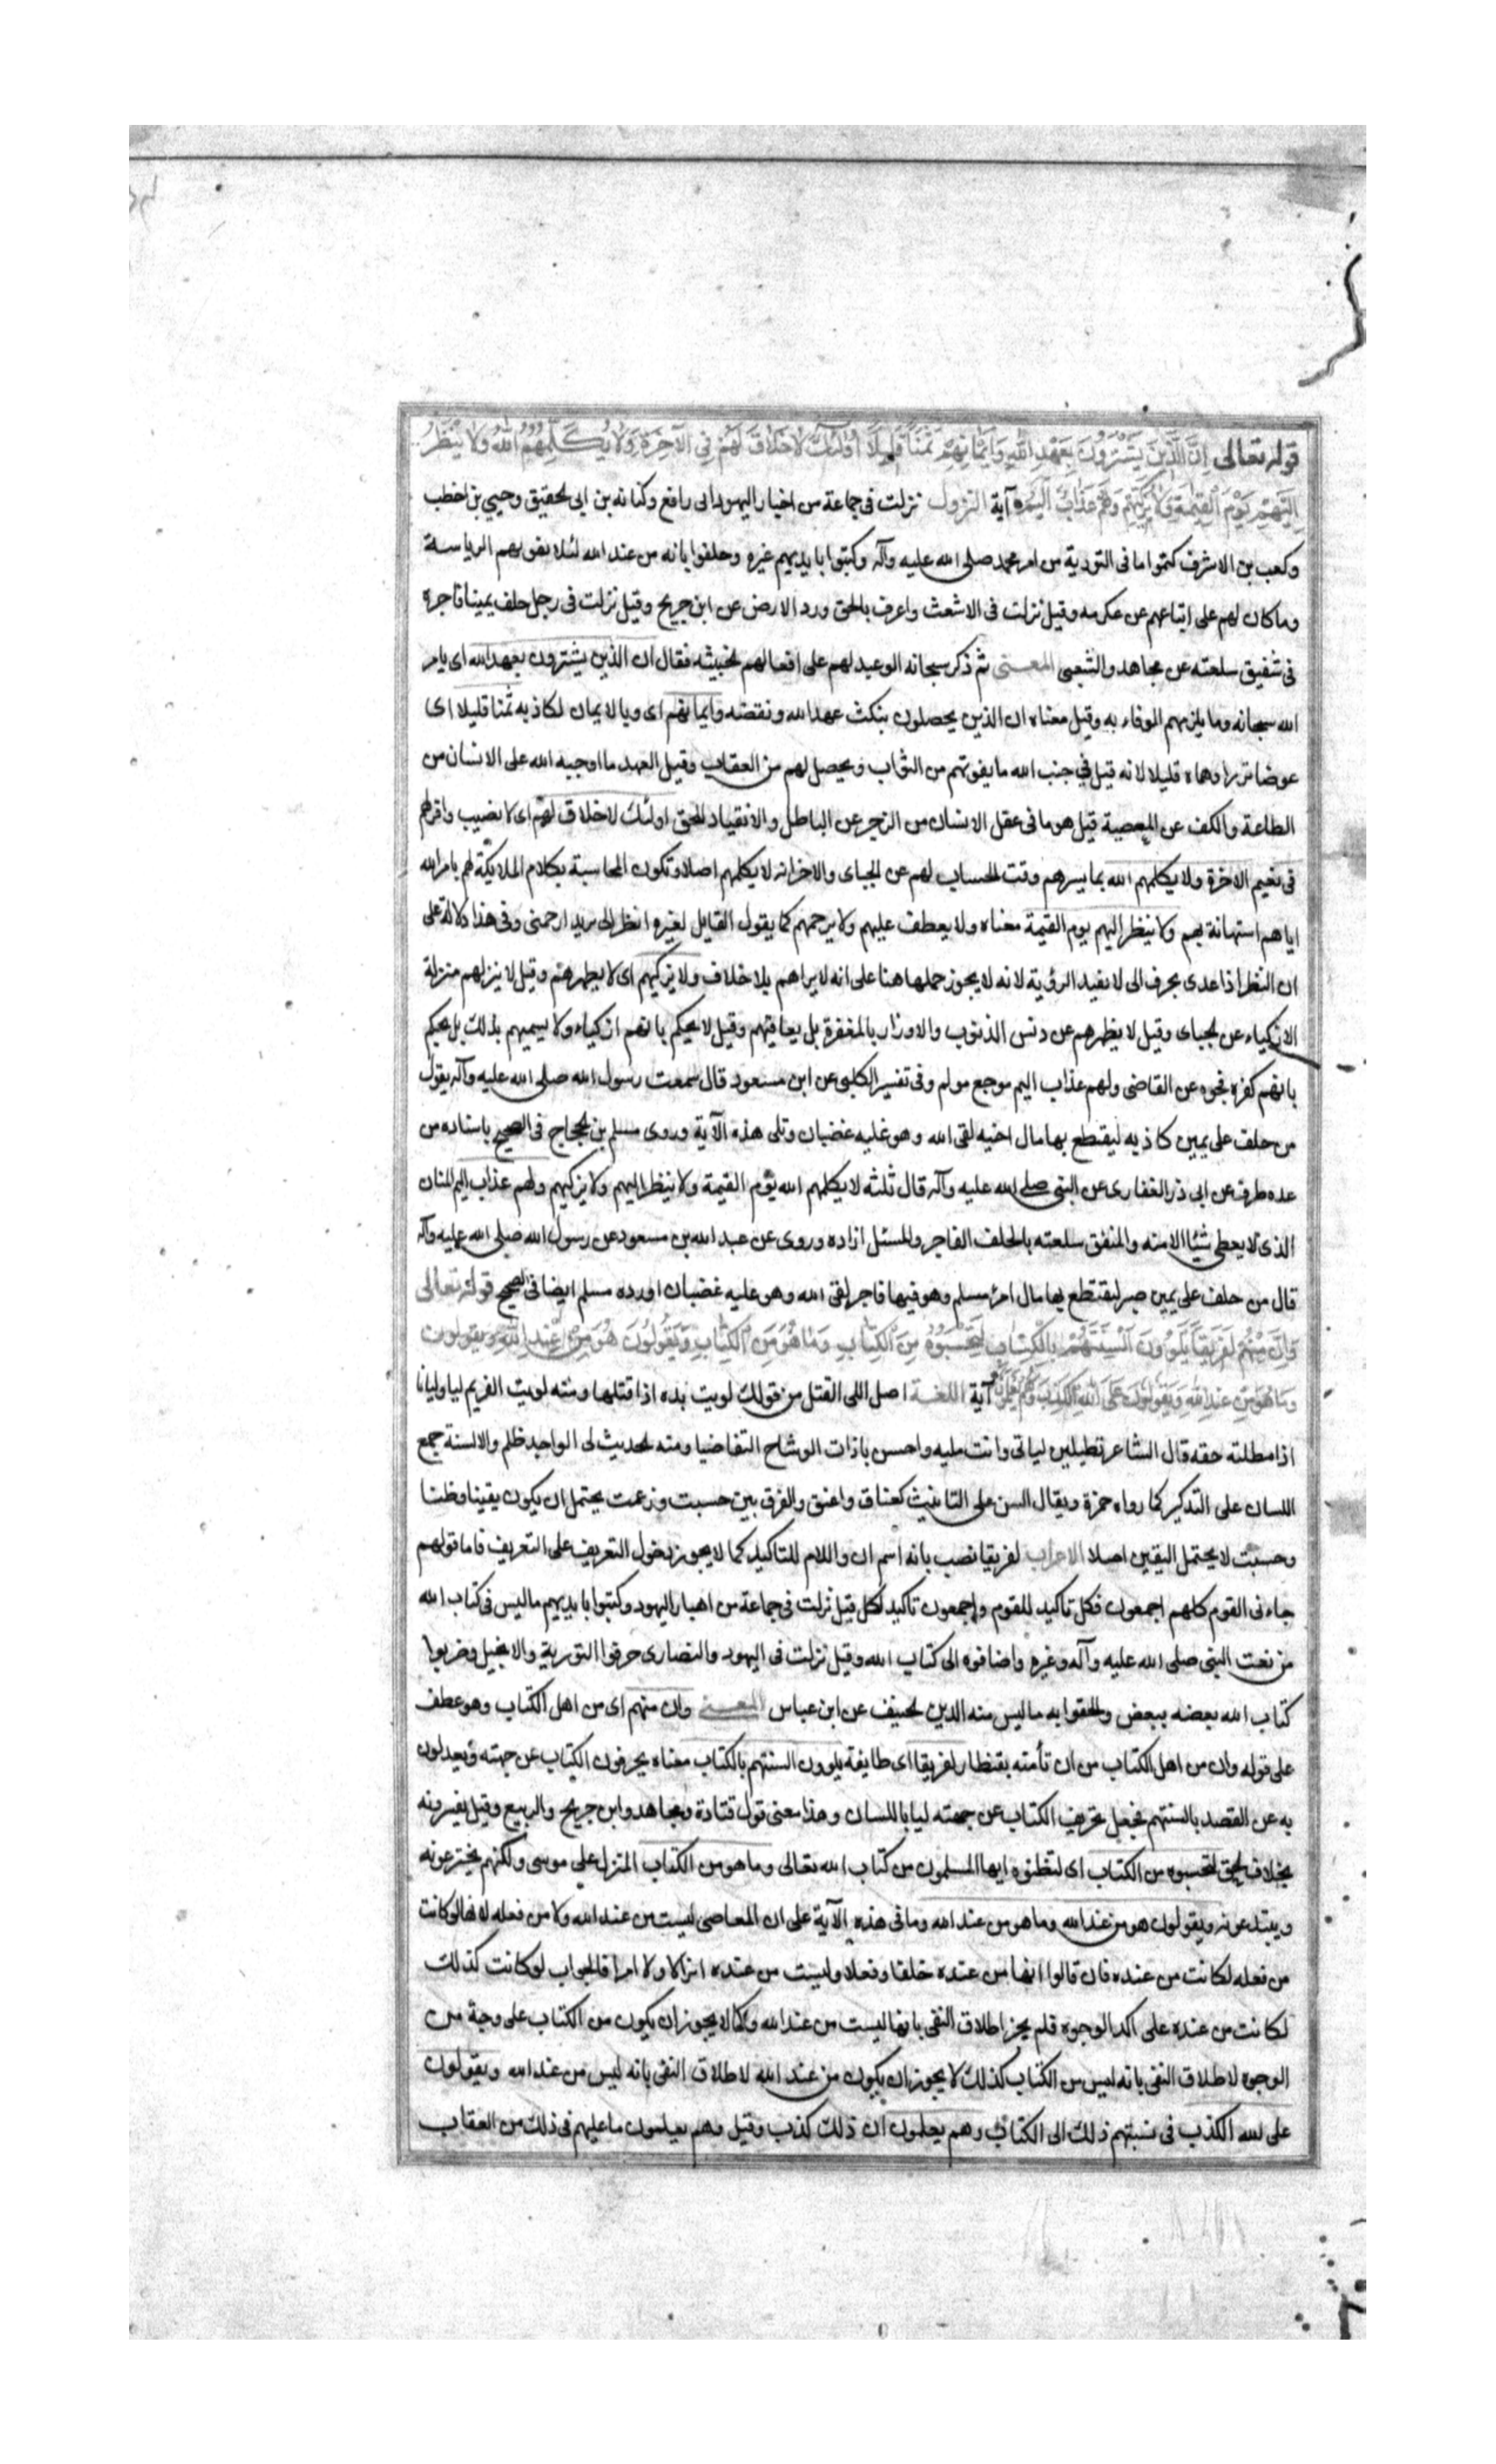 قوله تعالى اِنَّ الَّذينَ يَشتَرُونَ بِعَهْدِ اللهِ وَاَيْمَانِهِمْ ثَمَناً قَلِيلاً اُولئِكَ لَا خَلَاقَ لَهُمْ فِي الْآخِرَةِ وَلَا يُكَلِّمُهُمُ اللهُ وَلَا يَنْظُرُ
اِلَيْهِمْ يَوْمَ الْقِيمَةِ وَلَا يُزَكِّيهِمْ وَلَهُمْ عَذَابٌ اَلِيمٌ آية النزول نزلت فى جماعة من احبار اليهود ابى رافع وكنانه بن ابى الحقيق وحيي بن اخطب
وكعب بن الاشرف كتموا ما فى التورية من امر محمد صلى الله عليه وآله وكتبوا بايديهم غيره وحلفوا بانه من عند الله لئلا يفوتهم الرياسة
وما كان لهم على اتباعهم عن عكرمه وقيل نزلت فى الاشعث واعرف بالحق ورد الارض عن ابن جريج وقيل نزلت فى رجل حلف يمينا فاجرة
فى تنفيق سلعته عن مجاهد والشعبى المعنى ثم ذكر سبحانه الوعيد لهم على افعالهم الخبيثه فقال ان الذين يشترون بعهد الله اى بامر
الله سبحانه وما يلزمهم الوفاء به وقيل معناه ان الذين يحصلون بنكث عهد الله ونقضه وايمانهم اى وبالايمان الكاذبه ثمنا قليلا اى
عوضا نزرا وسماه قليلا لانه قيل في جنب الله ما يفوتهم من الثواب ويحصل لهم من العقاب وقيل العهد ما اوجبه الله على الانسان من
الطاعة والكف عن المعصية قيل هو ما فى عقل الانسان من الزجر عن الباطل والانقياد للحق اولئك لا خلاق لهم اى لا نصيب وافر لهم
فى نعيم الاخرة ولا يكلمهم الله بما يسرهم وقت الحساب لهم عن الجباى والاخر انه لا يكلمهم اصلا وتكون المحاسبة بكلام الملائكة لهم بامر الله
اياهم استهانة بهم ولا ينظر اليهم يوم القيمة معناه ولا يعطف عليهم ولا يرحمهم كما يقول القايل لغيره انظر الى يريد ارحمنى وفى هذا دلالة على
ان النظر اذا عدى بحرف الى لا يفيد الرؤية لانه لا يجوز حملها هنا على انه لا يراهم بلا خلاف ولا يزكيهم اى لا يطهرهم وقيل لا ينزلهم منزلة
الازكياء عن الجباى وقيل لا يطهرهم عن دنس الذنوب والاوزار بالمغفرة بل يعاقبهم وقيل لا يحكم بانهم ازكياء ولا يسميهم بذلك بل يحكم
بانهم كفره فجره عن القاضى ولهم عذاب اليم موجع مولم وفى تفسير الكلبى عن ابن مسعود قال سمعت رسول الله صلى الله عليه وآله يقول
من حلف على يمين كاذبه ليقتطع بها مال اخيه لقى الله وهو عليه غضبان وتلى هذه الآية وروى مسلم بن الحجاج فى الصحيح باسناده من
عده طرق عن ابى ذر الغفارى عن النبى صلى الله عليه وآله قال ثلثه لا يكلمهم الله يوم القيمة ولا ينظر اليهم ولا يزكيهم ولهم عذاب اليم المنان
الذى لا يعطى شيئا الا منه والمنفق سلعته بالحلف الفاجر والمسبل ازاره وروى عن عبد الله بن مسعود عن رسول الله صلى الله عليه وآله
قال من حلف على يمين صبر ليقتطع بها مال امرء مسلم وهو فيها فاجر لقى الله وهو عليه غضبان اورده مسلم ايضا فى الصحيح قوله تعالى
وَاِنَّ مِنْهُمْ لَفَريقاً يَلْوُونَ اَلْسِنَتَهُمْ بِالْكِتَابِ لِتَحْسَبُوهُ مِنَ الْكِتَابِ وَمَا هُوَ مِنَ الْكِتَابِ وَيَقُولُونَ هُوَ مِنْ عِنْدِ اللهِ ويقولون
وَمَا هُوَ مِنْ عِنْدِ اللهِ وَيَقُولُونَ عَلَى اللهِ الْكَذِبَ وَهُمْ يَعْلَمُونَ آية اللغة اصل اللى الفتل من قولك لويت يده اذا فتلها ومنه لويت الغريم ليا وليانا
اذا مطلته حقه قال الشاعر تطيلين ليانى وانت مليه واحسن ياذات الوشاح التقاضيا ومنه الحديث لى الواجد ظلم والالسنة جمع
اللسان على التذكير كما رواه حمزة ويقال السن على التانيث كعناق واعنق والفرق بين حسبت وزعمت يحتمل ان يكون يقينا وظنا
وحسبت لا يحتمل اليقين اصلا الاعراب لفريقا نصب بانه اسم ان واللام للتاكيد كما لا يجوز دخول التعريف على التعريف فاما قولهم
جاءنى القوم كلهم اجمعون فكل تاكيد للقوم واجمعون تاكيد لكل قيل نزلت فى جماعة من احبار اليهود وكتبوا بايديهم ما ليس فى كتاب الله
من نعت النبى صلى الله عليه وآله وغيره واضافوه الى كتاب الله وقيل نزلت فى اليهود والنصارى حرفوا التورية والانجيل وضربوا
كتاب الله بعضه ببعض والحقوا به ما ليس منه الدين الحنيف عن ابن عباس المعنى وان منهم اى من اهل الكتاب وهو عطف
على قوله وان من اهل الكتاب من ان تأمنه بقنطار لفريقا اى طايفة يلوون السنتهم بالكتاب معناه يحرفون الكتاب عن جهته ويعدلون
به عن القصد بالسنتهم فجعل تحريف الكتاب عن جهته ليا باللسان وهذا معنى قول قتادة ومجاهد وابن جريج والربيع وقيل يفسرونه
بخلاف الحق لتحسبوه من الكتاب اى لتظنوه ايها المسلمون من كتاب الله تعالى وما هو من الكتاب المنزل على موسى ولكنهم يخترعونه
ويبتدعونه ويقولون هو من عند الله وما هو من عند الله وما فى هذه الآية على ان المعاصى ليست من عند الله ولا من فعله لانها لو كانت
من فعله لكانت من عنده فان قالوا انها من عنده خلقا وفعلا وليست من عنده انزالا ولا امرا فالجواب لو كانت كذلك
لكانت من عنده على اكد الوجوه فلم يجز اطلاق النفى بانها ليست من عند الله وكما لا يجوز ان يكون من الكتاب على وجه من
الوجوه لاطلاق النفى بانه ليس من الكتاب كذلك لا يجوز ان يكون من عند الله لاطلاق النفى بانه ليس من عند الله ويقولون
على الله الكذب فى نسبتهم ذلك الى الكتاب وهم يعلمون ان ذلك كذب وقيل وهم يعلمون ما عليهم فى ذلك من العقاب